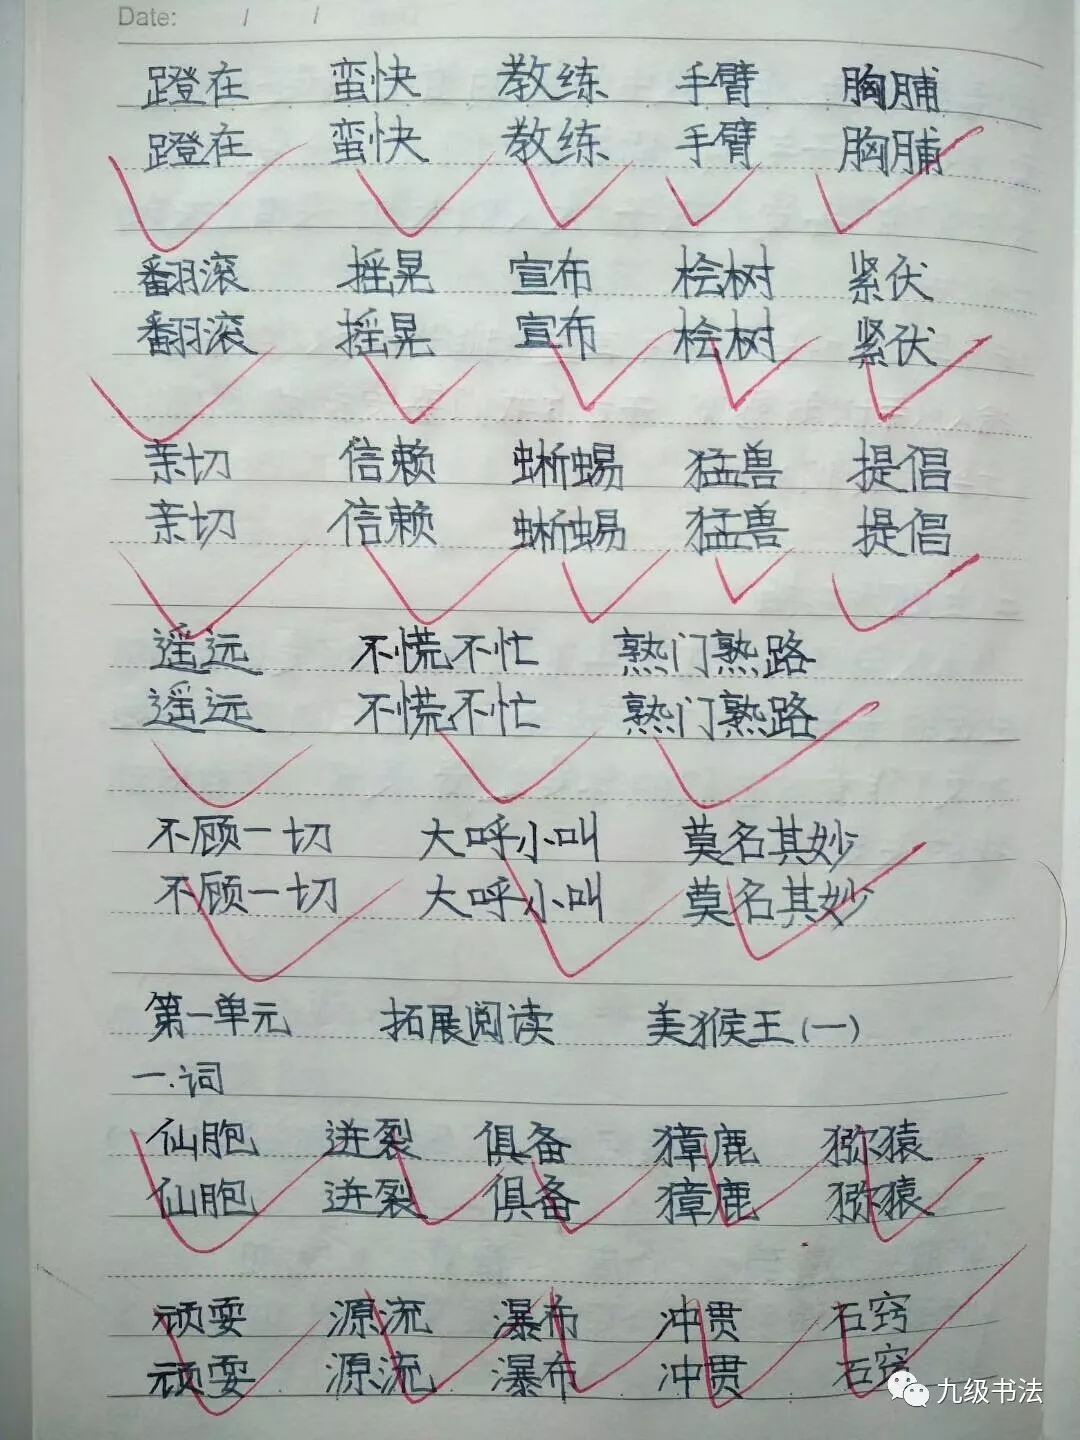 Date: / /
蹬在 蛮快 教练 手臂 胸脯
蹬在 蛮快 教练 手臂 胸脯
翻滚 摇晃 宣布 桧树 紧伏
翻滚 摇晃 宣布 桧树 紧伏
亲切 信赖 蜥蜴 猛兽 提倡
亲切 信赖 蜥蜴 猛兽 提倡
遥远 不慌不忙 熟门熟路
遥远 不慌不忙 熟门熟路
不顾一切 大呼小叫 莫名其妙
不顾一切 大呼小叫 莫名其妙
第一单元 拓展阅读 美猴王(一)
一.词
仙胞 迸裂 俱备 獐鹿 猕猿
仙胞 迸裂 俱备 獐鹿 猕猿
顽耍 源流 瀑布 冲贯 石窍
顽耍 源流 瀑布 冲贯 石窍
九级书法